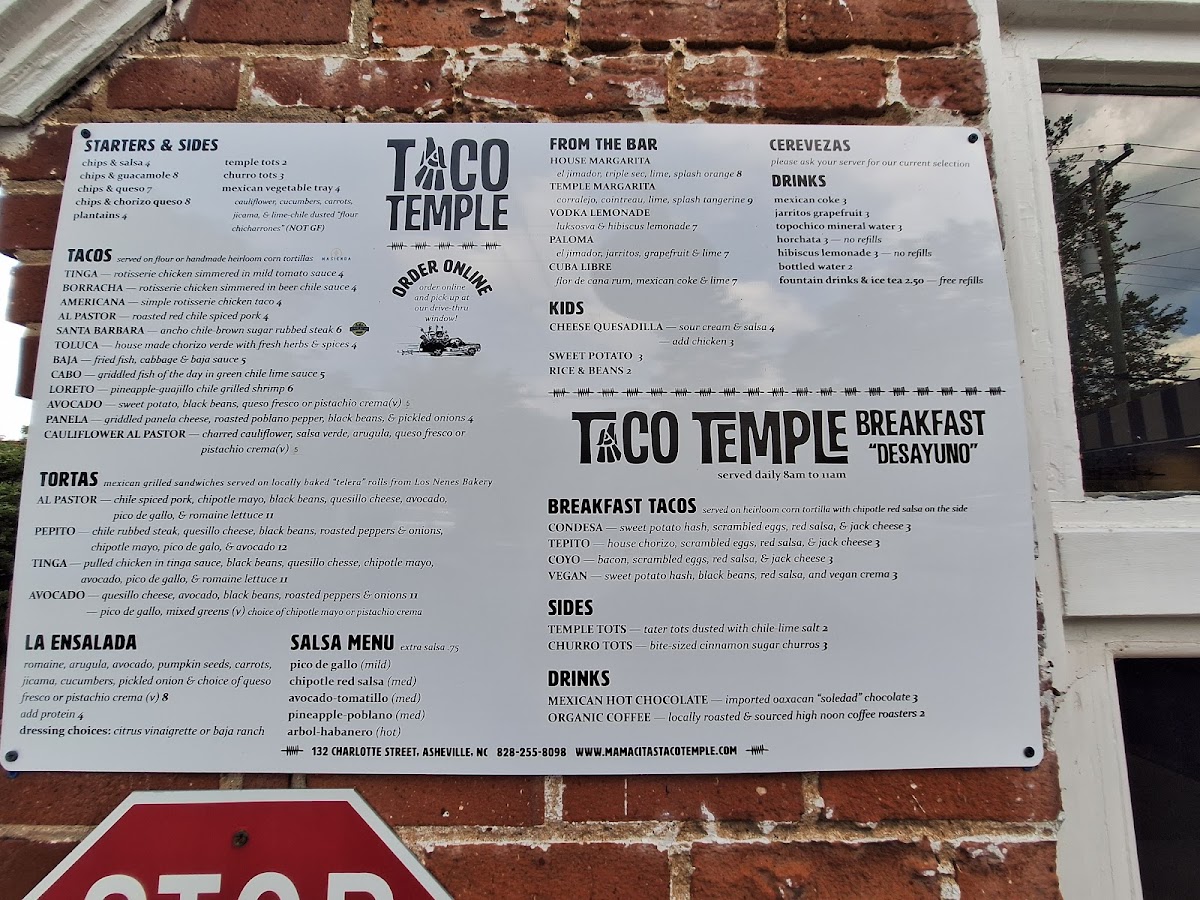 STARTERS & SIDES
chips & salsa 4
chips & guacamole 8
chips & queso 7
chips & chorizo queso 8
plantains 4
temple tots 2
churro tots 3
mexican vegetable tray 4
cauliflower, cucumbers, carrots,
jicama, & lime-chile dusted "flour
chicharrones" (NOT GF)
TACO
TEMPLE
ORDER ONLINE
order online
and pick up at
our drive-thru
window!
TACOS served on flour or handmade heirloom corn tortillas
TINGA — rotisserie chicken simmered in mild tomato sauce 4
BORRACHA — rotisserie chicken simmered in beer chile sauce 4
AMERICANA — simple rotisserie chicken taco 4
AL PASTOR — roasted red chile spiced pork 4
SANTA BARBARA — ancho chile-brown sugar rubbed steak 6
TOLUCA — house made chorizo verde with fresh herbs & spices 4
BAJA — fried fish, cabbage & baja sauce 5
CABO — griddled fish of the day in green chile lime sauce 5
LORETO — pineapple-guajillo chile grilled shrimp 6
AVOCADO — sweet potato, black beans, queso fresco or pistachio crema(v) 5
PANELA — griddled panela cheese, roasted poblano pepper, black beans, & pickled onions 4
CAULIFLOWER AL PASTOR — charred cauliflower, salsa verde, arugula, queso fresco or
pistachio crema(v) 5
TORTAS mexican grilled sandwiches served on locally baked "telera" rolls from Los Nenes Bakery
AL PASTOR — chile spiced pork, chipotle mayo, black beans, quesillo cheese, avocado,
pico de gallo, & romaine lettuce 11
PEPITO — chile rubbed steak, quesillo cheese, black beans, roasted peppers & onions,
chipotle mayo, pico de galo, & avocado 12
TINGA — pulled chicken in tinga sauce, black beans, quesillo chesse, chipotle mayo,
avocado, pico de gallo, & romaine lettuce 11
AVOCADO — quesillo cheese, avocado, black beans, roasted peppers & onions 11
— pico de gallo, mixed greens (v) choice of chipotle mayo or pistachio crema
LA ENSALADA
romaine, arugula, avocado, pumpkin seeds, carrots,
jicama, cucumbers, pickled onion & choice of queso
fresco or pistachio crema (v) 8
add protein 4
dressing choices: citrus vinaigrette or baja ranch
SALSA MENU extra salsa .75
pico de gallo (mild)
chipotle red salsa (med)
avocado-tomatillo (med)
pineapple-poblano (med)
arbol-habanero (hot)
FROM THE BAR
HOUSE MARGARITA
el jimador, triple sec, lime, splash orange 8
TEMPLE MARGARITA
corralejo, cointreau, lime, splash tangerine 9
VODKA LEMONADE
luksosva & hibiscus lemonade 7
PALOMA
el jimador, jarritos, grapefruit & lime 7
CUBA LIBRE
flor de cana rum, mexican coke & lime 7
CEREVEZAS
please ask your server for our current selection
DRINKS
mexican coke 3
jarritos grapefruit 3
topochico mineral water 3
horchata 3 — no refills
hibiscus lemonade 3 — no refills
bottled water 2
fountain drinks & ice tea 2.50 — free refills
KIDS
CHEESE QUESADILLA — sour cream & salsa 4
— add chicken 3
SWEET POTATO 3
RICE & BEANS 2
TACO TEMPLE BREAKFAST
"DESAYUNO"
served daily 8am to 11am
BREAKFAST TACOS served on heirloom corn tortilla with chipotle red salsa on the side
CONDESA — sweet potato hash, scrambled eggs, red salsa, & jack cheese 3
TEPITO — house chorizo, scrambled eggs, red salsa, & jack cheese 3
COYO — bacon, scrambled eggs, red salsa, & jack cheese 3
VEGAN — sweet potato hash, black beans, red salsa, and vegan crema 3
SIDES
TEMPLE TOTS — tater tots dusted with chile-lime salt 2
CHURRO TOTS — bite-sized cinnamon sugar churros 3
DRINKS
MEXICAN HOT CHOCOLATE — imported oaxacan "soledad" chocolate 3
ORGANIC COFFEE — locally roasted & sourced high noon coffee roasters 2
132 CHARLOTTE STREET, ASHEVILLE, NC 828-255-8098 WWW.MAMACITASTACOTEMPLE.COM
STOP